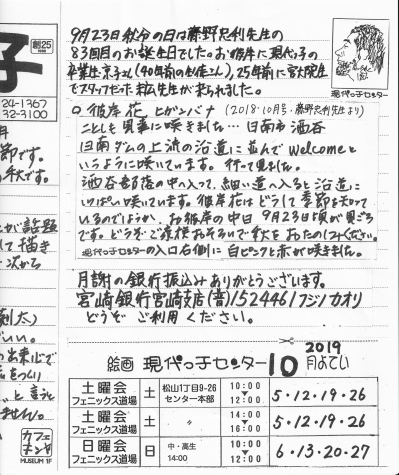 9月23日秋分の日は藤野忠利先生の
83回目のお誕生日でした。お彼岸に現代っ子の
卒業生京子さん(40年前の生徒さん)、25年前に宮大院生
でスタッフだった 先生が来られました。
現代っ子センター
彼岸花 ヒガンバナ (2018・10月号・藤野忠利先生より)
ことしも見事に咲きました…日南市酒谷
日南ダムの上流の沿道に並んでWelcomeと
いうように咲いています。行って見ました。
酒谷部落の中へ入って、細い道へ入ると沿道に
いっぱい咲いています。彼岸花はどうして季節を知って
いるのでしょうか、お彼岸の中日 9月23日頃が見ごろ
です。どうぞご家族おそろいで秋をおたのしみください。
現代っ子センターの入口右側に 白ピンクと赤が咲きました。
月謝の銀行振込みありがとうございます。
宮崎銀行宮崎支店(普)1524461フジノカオリ
どうぞ ご利用ください。
絵画 現代っ子センター 10 2019 月よてい
土曜会 フェニックス道場 土 松山1丁目9-26 センター本部 10:00 ▼ 12:00 5・12・19・26
土曜会 フェニックス道場 土 〃 14:00 ▼ 16:00 5・12・19・26
日曜会 フェニックス道場 日 中・高生 14:00 10:00 ▼ 12:00 6・13・20・27
子
創25
24-1367
32-3100
月
節です。
秋です。
が話題
して描き
次から
創太)
いい。
出来心で
をつくり
と言うと
ません。
カフェ
MUSEUM 1F